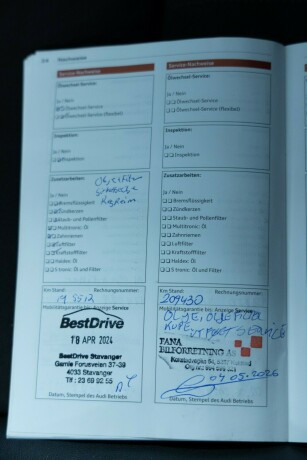 Nachweise
Service-Nachweise
Ölwechsel-Service:
Ja / Nein
Ölwechsel-Service
Ölwechsel-Service (flexibel)
Inspektion:
Ja / Nein
Inspektion
Zusatzarbeiten:
Ja / Nein
Bremsflüssigkeit
Zündkerzen
Staub- und Pollenfilter
Multitronic: Öl
Zahnriemen
Luftfilter
Kraftstofffilter
Haldex: Öl
S tronic: Öl und Filter
Km Stand:
Rechnungsnummer:
Mobilitätsgarantie bis: Anzeige Service
BestDrive
18 APR 2024
BestDrive Stavanger
Gamle Forusveien 37-39
4033 Stavanger
Tlf: 23 69 92 55
Datum, Stempel des Audi Betriebs
Service-Nachweise
Ölwechsel-Service:
Ja / Nein
Ölwechsel-Service
Ölwechsel-Service (flexibel)
Inspektion:
Ja / Nein
Inspektion
Zusatzarbeiten:
Ja / Nein
Bremsflüssigkeit
Zündkerzen
Staub- und Pollenfilter
Multitronic: Öl
Zahnriemen
Luftfilter
Kraftstofffilter
Haldex: Öl
S tronic: Öl und Filter
Km Stand:
Rechnungsnummer:
209430
Mobilitätsgarantie bis: Anzeige Service
OLJE, OLJEFILTER
KUPE
TANA
BILFORRETNING AS
Datum, Stempel des Audi Betriebs